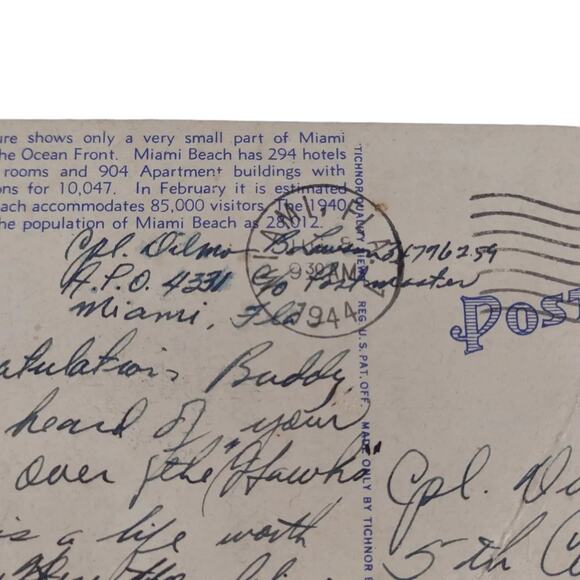 ure shows only a very small part of Miami
the Ocean Front. Miami Beach has 294 hotels
rooms and 904 Apartment buildings with
ons for 10,047. In February it is estimated
each accommodates 85,000 visitors. The 1940
the population of Miami Beach as 28,012.
Cpl. Dilmo
A.P.O. 4331 C/o Postmaster
Miami, Fla
MIAMI, FLA.
9 30 AM
1944
atulations Buddy,
heard of your
over the "Hawks"
is a life worth
TICHNOR QUALITY VIEWS REG. U. S. PAT. OFF. MADE ONLY BY TICHNOR B
POST
Cpl.
5th